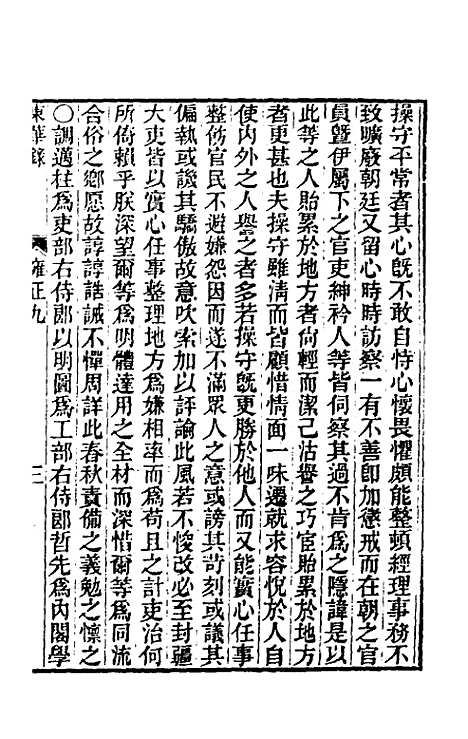 操守平常者其心旣不敢自恃心懷畏懼頗能整頓經理事務不
致曠廢朝廷又留心時時訪察一有不善卽加懲戒而在朝之官
員曁伊屬下之官吏紳衿人等皆伺察其過不肯爲之隱諱是以
此等之人貽累於地方者尙輕而潔己沽譽之巧宦貽累於地方
者更甚也夫操守雖清而皆顧惜情面一味遷就求容悅於人自
使內外之人譽之者多若操守旣更勝於他人而又能實心任事
整飭官民不避嫌怨因而遂不滿眾人之意或謗其苛刻或議其
偏執或譏其驕傲故意吹索加以評論此風若不悛改必至封疆
大吏皆以實心任事整理地方爲嫌相率而爲苟且之計吏治何
所倚賴乎朕深望爾等爲明體達用之全材而深惜爾等爲同流
合俗之鄉愿故諄諄誥誡不憚周詳此春秋責備之義勉之懍之
〇調邁柱爲吏部右侍郞以明圖爲工部右侍郞哲先爲內閣學
東華錄 雍正九 三